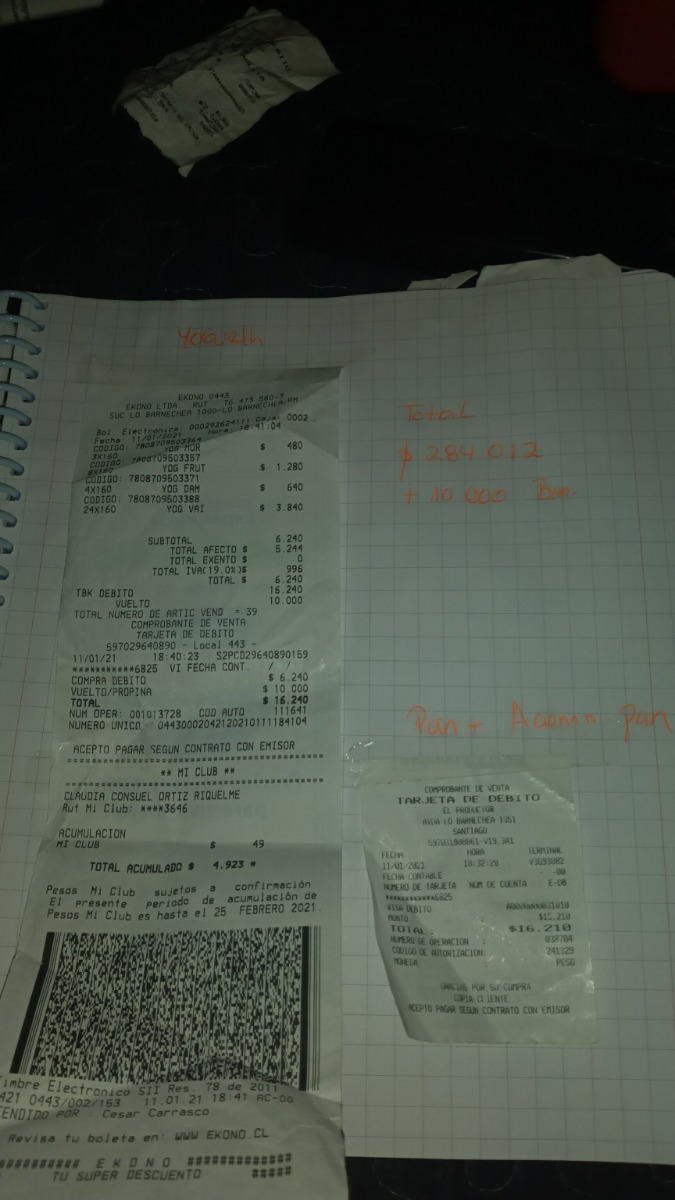 Yogureth
EKONO 0443
EKONO LTDA. RUT 76.473.580-3
SUC LO BARNECHEA 1000-LO BARNECHEA-RM
Bol Electronica: 000292624111 Caja: 0002
Fecha: 11/01/2021 Hora: 18:41:04
CODIGO: 7808709503364
3X160 YOG MOR $ 480
CODIGO: 7808709503357
8X160 YOG FRUT $ 1.280
CODIGO: 7808709503371
4X160 YOG DAM $ 640
CODIGO: 7808709503388
24X160 YOG VAI $ 3.840
SUBTOTAL 6.240
TOTAL AFECTO $ 5.244
TOTAL EXENTO $ 0
TOTAL IVA(19.0%)$ 996
TOTAL $ 6.240
TBK DEBITO 16.240
VUELTO 10.000
TOTAL NUMERO DE ARTIC VEND = 39
COMPROBANTE DE VENTA
TARJETA DE DEBITO
597029640890 - Local 443 -
11/01/21 18:40:23 S2PCD29640890159
***********6825 VI FECHA CONT. / /
COMPRA DEBITO $ 6.240
VUELTO/PROPINA $ 10.000
TOTAL $ 16.240
NUM OPER: 001013728 COD AUTO 111641
NUMERO UNICO
ACEPTO PAGAR SEGUN CONTRATO CON EMISOR
** MI CLUB **
CLAUDIA CONSUEL ORTIZ RIQUELME
Rut Mi Club: ****3646
ACUMULACION
MI CLUB $ 49
TOTAL ACUMULADO $ 4.923 *
Pesos Mi Club sujetos a confirmación
El presente periodo de acumulación de
Pesos Mi Club es hasta el 25 FEBRERO 2021.
Timbre Electronico SII Res. 78 de 2011
421 0443/002/153 11.01.21 18:41 AC-00
TENDIDO POR : Cesar Carrasco
Revisa tu boleta en: WWW.EKONO.CL
########## E K O N O #############
TU SUPER DESCUENTO #####
Total
$ 284 012
+ 10 000
Pan +
pan
COMPROBANTE DE VENTA
TARJETA DE DEBITO
EL PRODUCTOR
AVDA LO BARNECHEA 1351
SANTIAGO
FECHA HORA TERMINAL
11/01/2021 18:32:20
FECHA CONTABLE
NUMERO DE TARJETA NUM DE CUENTA
***********6825
VISA DEBITO
MONTO : $16.210
TOTAL : $16.210
NUMERO DE OPERACION : 038704
CODIGO DE AUTORIZACION: 241329
MONEDA : PESO
GRACIAS POR SU COMPRA
COPIA CLIENTE
ACEPTO PAGAR SEGUN CONTRATO CON EMISOR